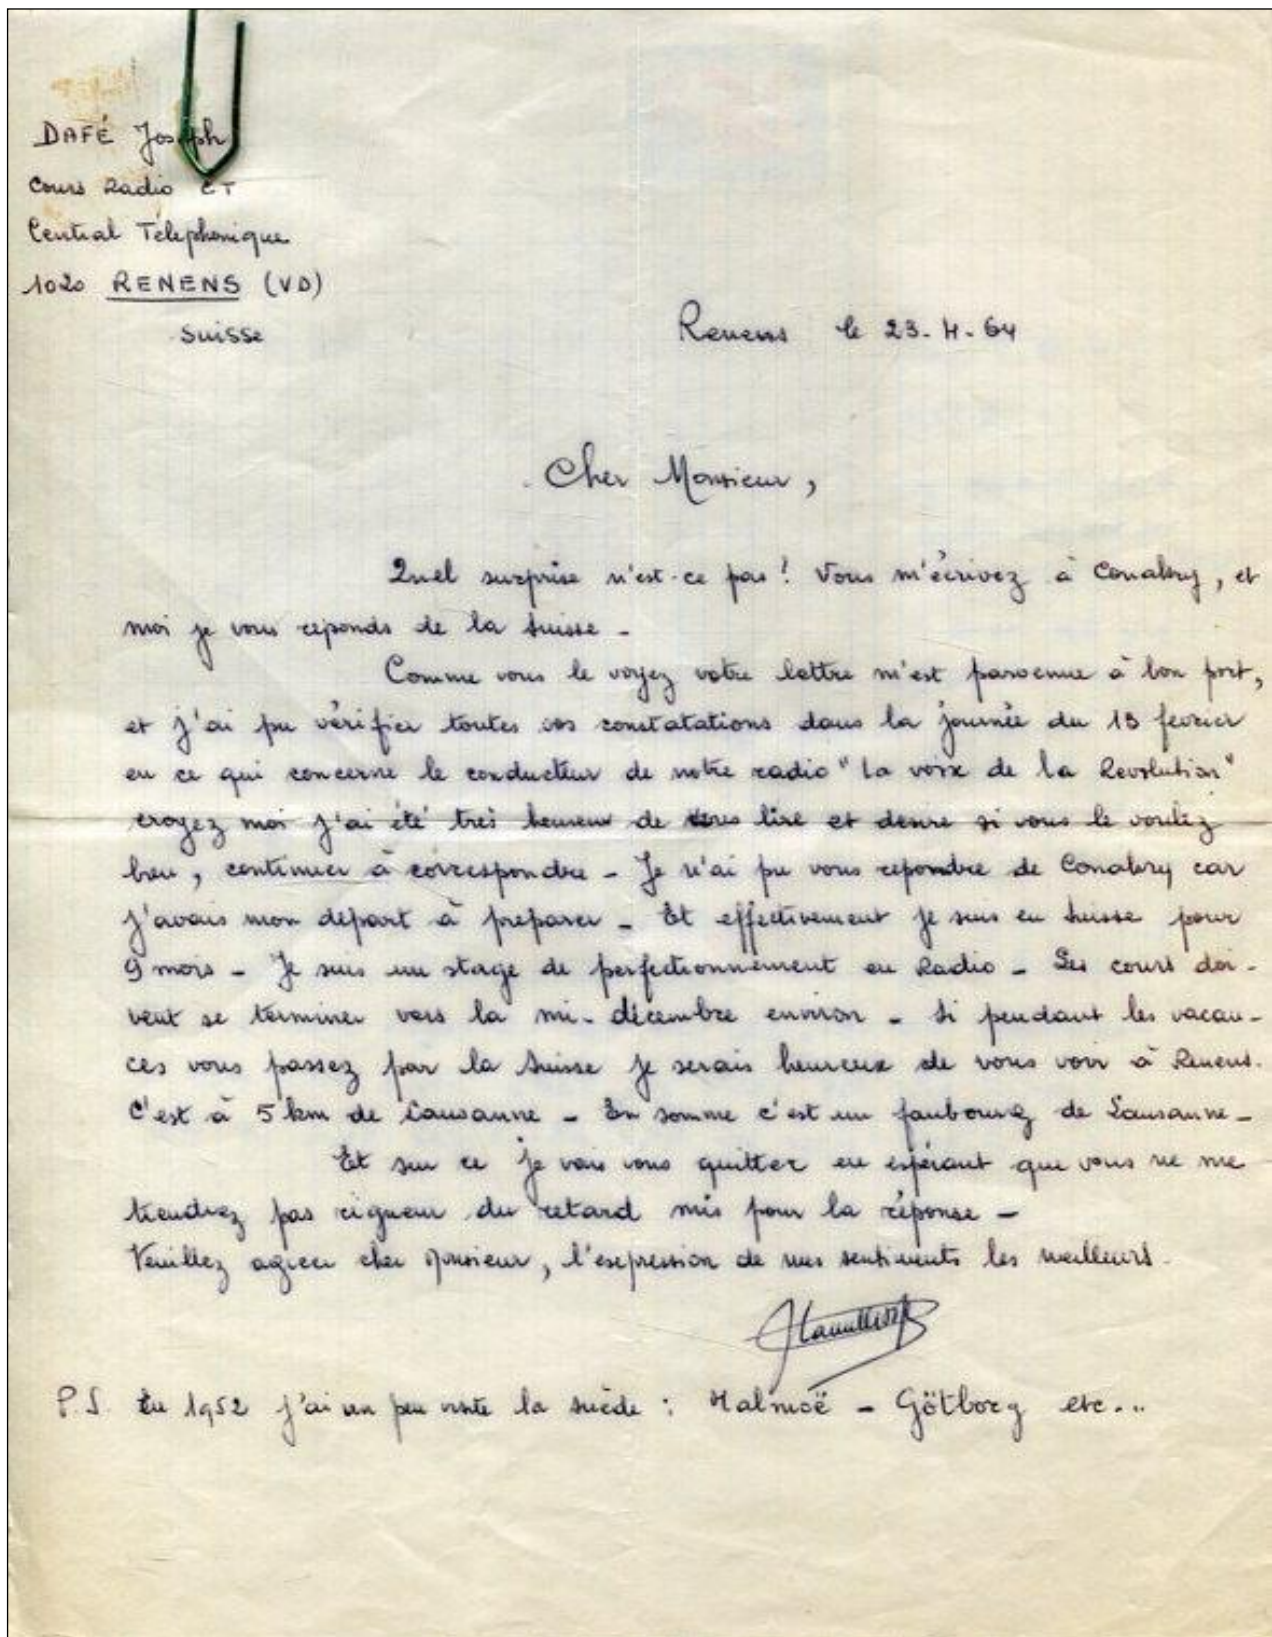 DAFÉ Joseph
Cours Radio CT
Central Téléphonique
1020 RENENS (VD)
Suisse
Renens le 23-4-64
Cher Monsieur,
Quel surprise n'est-ce pas! Vous m'écrivez à Conakry, et
moi je vous reponds de la Suisse -
Comme vous le voyez votre lettre m'est parvenue à bon port,
et j'ai pu vérifier toutes vos constatations dans la journée du 13 fevrier
en ce qui concerne le conducteur de notre radio "La voix de la Revolution"
croyez moi j'ai été très heureux de vous lire et desire si vous le voulez
bien, continuer à correspondre - Je n'ai pu vous repondre de Conakry car
j'avais mon départ à preparer - Et effectivement je suis en Suisse pour
9 mois - Je suis un stage de perfectionnement en Radio - Les cours doi-
vent se terminer vers la mi-décembre environ - Si pendant les vacan-
ces vous passez par la Suisse je serais heureux de vous voir à Renens.
C'est à 5 km de Lausanne - En somme c'est un faubourg de Lausanne -
Et sur ce je vais vous quitter en espérant que vous ne me
tiendrez pas rigueur du retard mis pour la réponse -
Veuillez agreer cher Monsieur, l'expression de mes sentiments les meilleurs.
P.S. En 1952 j'ai un peu visite la suède : Malmoë - Götborg etc...